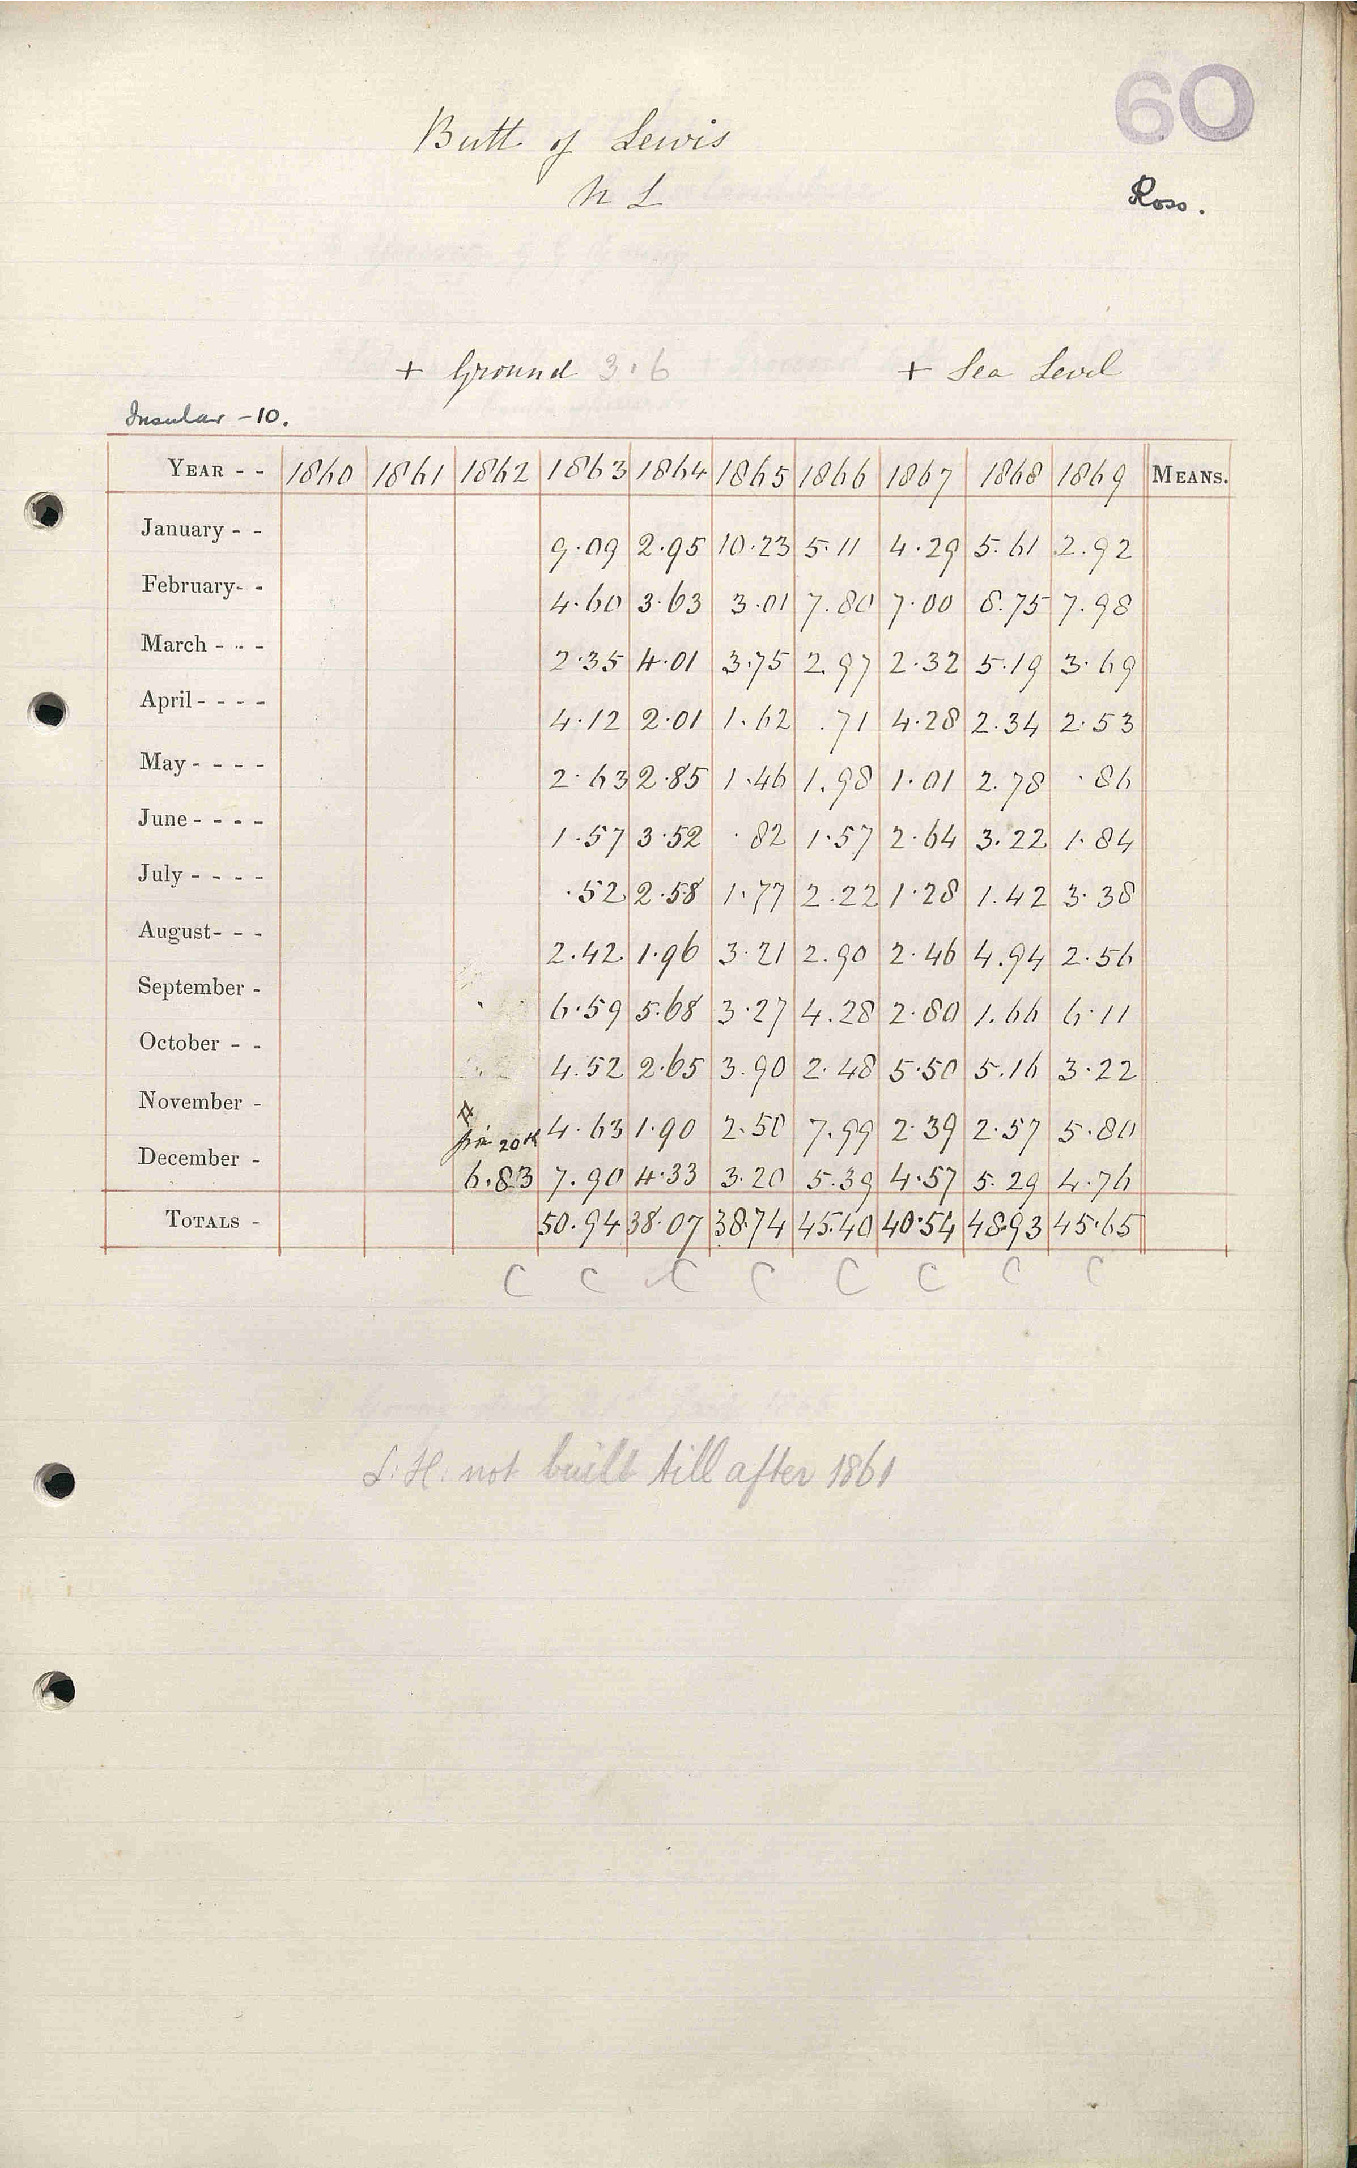 60
Butt of Lewis
N L
Ross.
+ Ground 3.6 + Sea Level
Insular - 10.
YEAR - - 1860 1861 1862 1863 1864 1865 1866 1867 1868 1869 MEANS.
January - - 9.09 2.95 10.23 5.11 4.29 5.61 2.92
February - - 4.60 3.63 3.01 7.80 7.00 8.75 7.98
March - - - 2.35 4.01 3.75 2.97 2.32 5.19 3.69
April - - - - 4.12 2.01 1.62 .71 4.28 2.34 2.53
May - - - - 2.63 2.85 1.46 1.98 1.01 2.78 .86
June - - - - 1.57 3.52 .82 1.57 2.64 3.22 1.84
July - - - - .52 2.58 1.77 2.22 1.28 1.42 3.38
August - - - 2.42 1.96 3.21 2.90 2.46 4.94 2.56
September - 6.59 5.68 3.27 4.28 2.80 1.66 6.11
October - - 4.52 2.65 3.90 2.48 5.50 5.16 3.22
November - 20th 4.63 1.90 2.50 7.99 2.39 2.57 5.80
December - 6.83 7.90 4.33 3.20 5.39 4.57 5.29 4.76
TOTALS - 50.94 38.07 38.74 45.40 40.54 48.93 45.65
C C C C C C C C
L.H. not built till after 1861